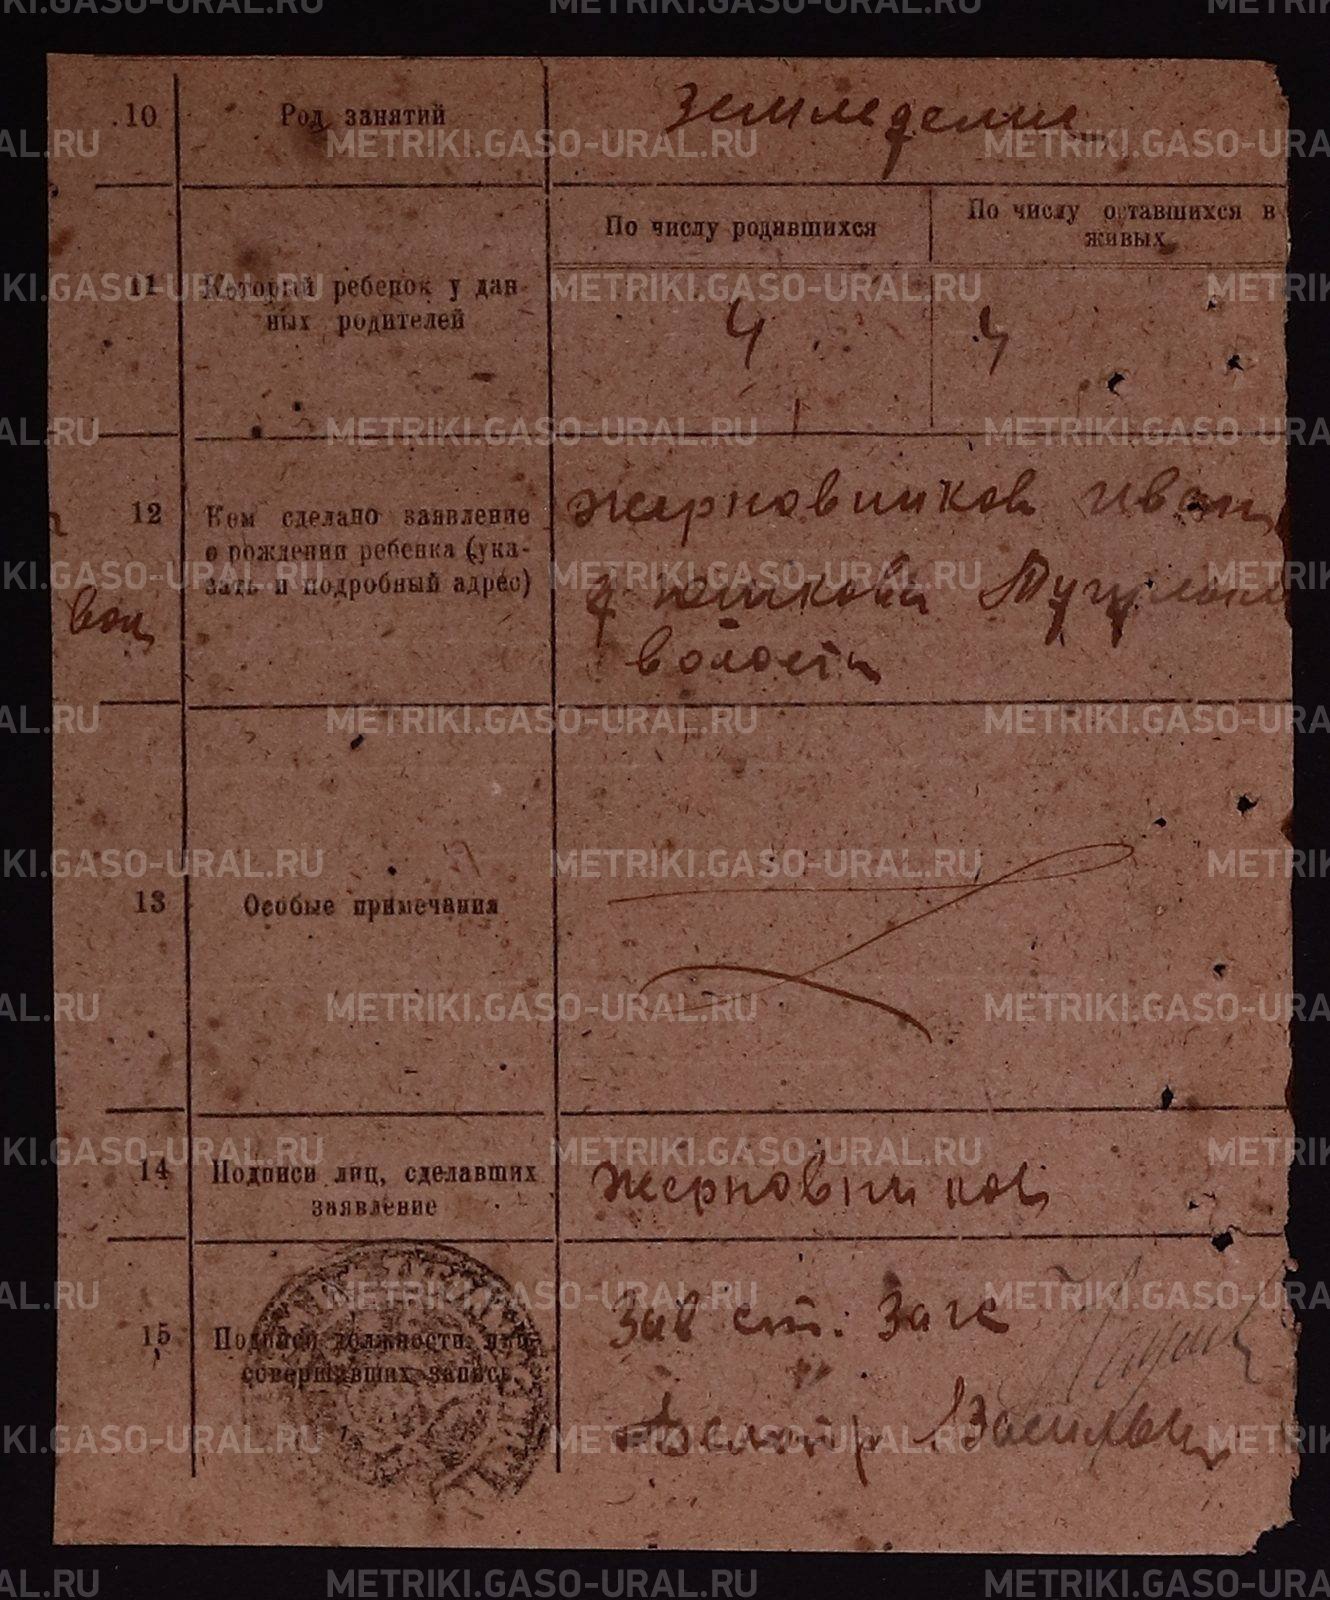 10 Род занятий Земледелие
По числу родившихся
По числу оставшихся в
живых
11 Который ребенок у дан-
ных родителей
4 4
12 Кем сделано заявление
о рождении ребенка (ука-
зать и подробный адрес)
Жерновников Иван
д Пешкова
волости
вол
13 Особые примечания
14 Подписи лиц, сделавших
заявление
Жерновников
15 Подписи должности. лиц,
совершавших запись
Зав ст. Загс
METRIKI.GASO-URAL.RU